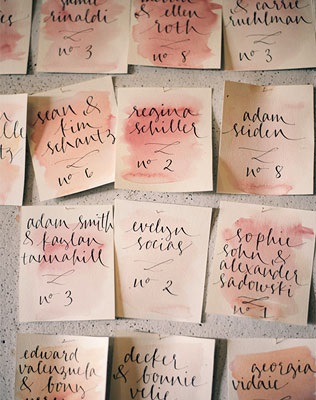 jamie
rinaldi
nº 3
& ellen
roth
nº 8
& carrie
ruchlman
nº 3
sean &
kim
schantz
nº 6
regina
schiller
nº 2
adam
seiden
nº 8
adam smith
& kaylan
tannahill
nº 3
evelyn
socias
nº 2
sophie
sohn &
alexander
sadowski
nº 1
edward
valenzuela
& bony
decker
& bonnie
velie
georgia
vidaie